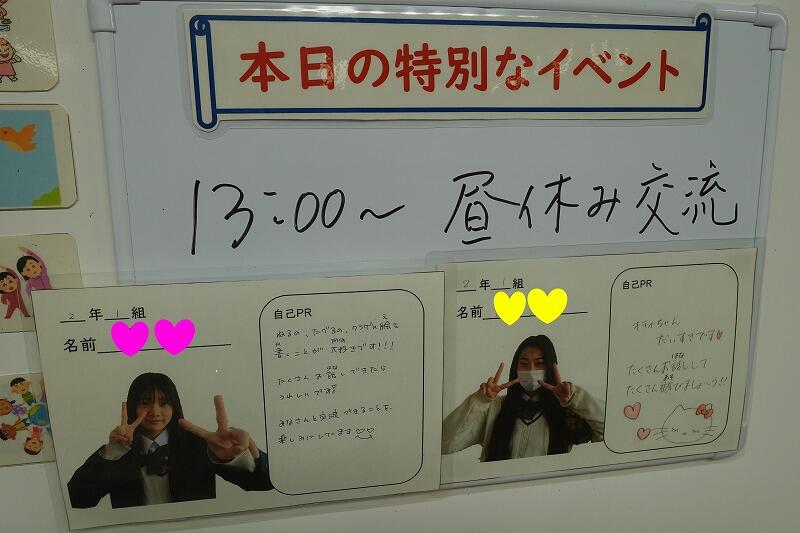 本日の特別なイベント
13:00～ 昼休み交流
2年1組
名前
自己PR
ねるの、たべるの、クラゲの絵を
え
書くことが大好きです!!!
たくさんお話しできたら
うれしいです。
みなさんと交流できることを
楽しみにしています
2年1組
名前
自己PR
だいすきです
はな
たくさんお話しして
あそ
たくさん遊びましょ〜う!!